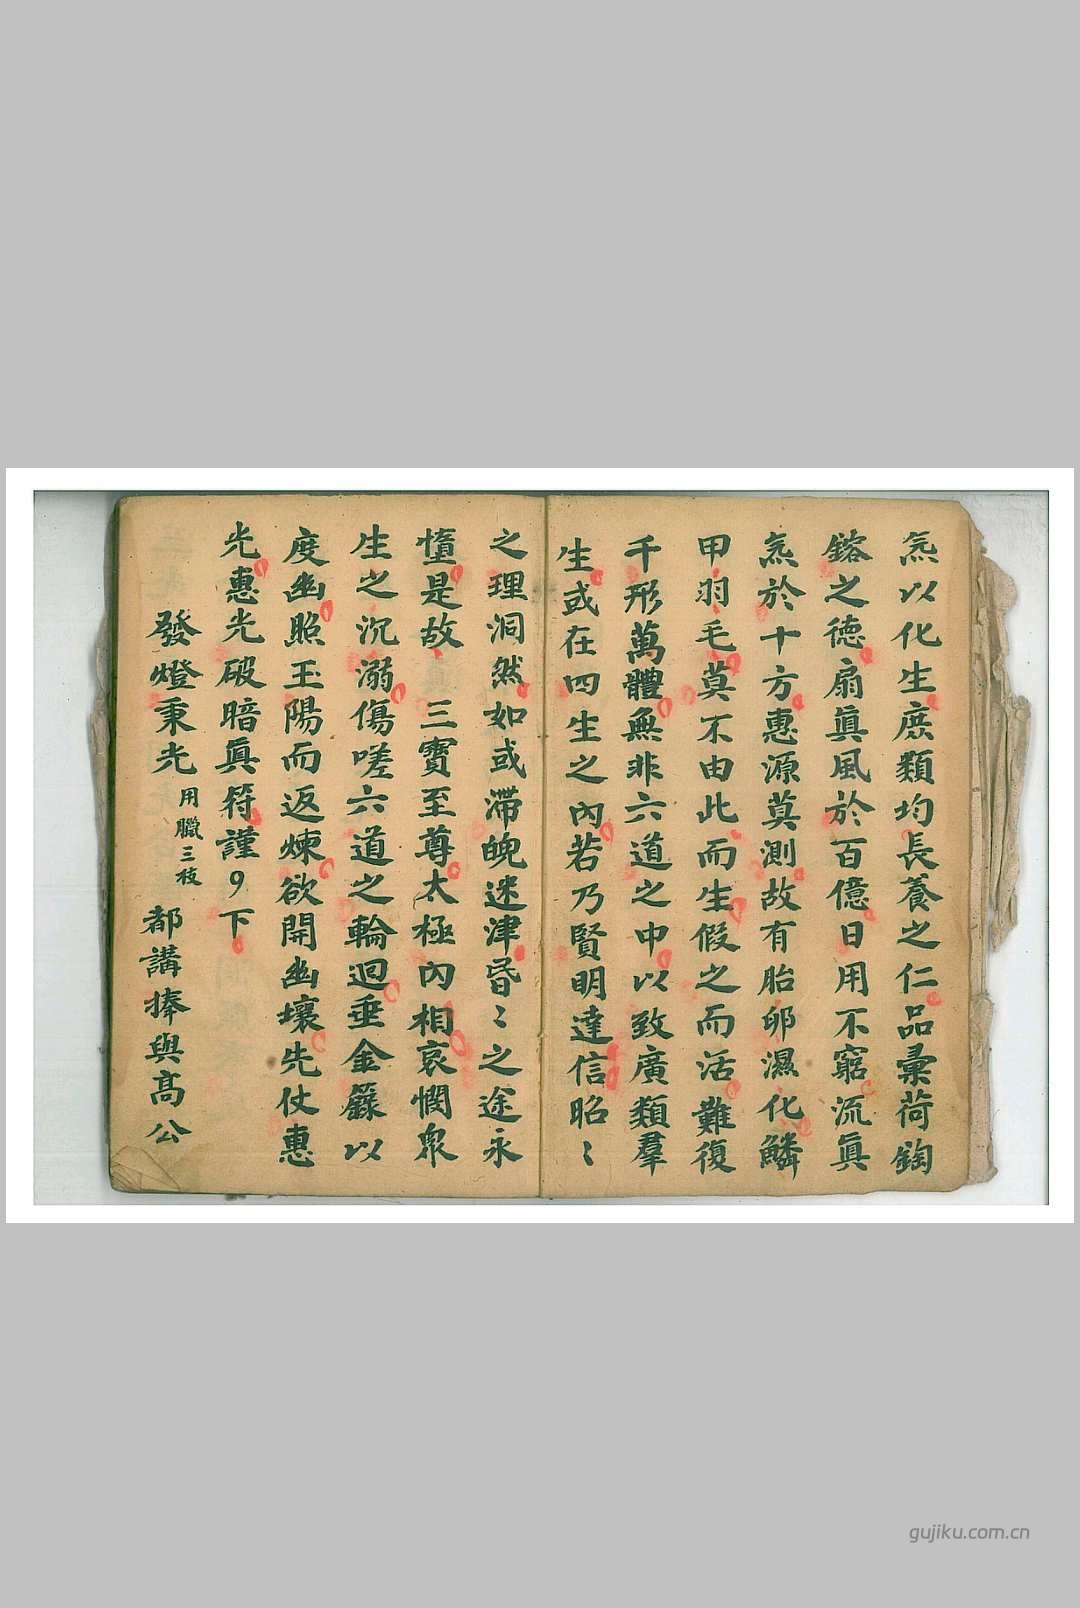 炁以化生庶類均長養之仁品彙荷鈞
鎔之德扇眞風於百億日用不窮流眞
炁於十方惠源莫測故有胎卵濕化鱗
甲羽毛莫不由此而生假之而活難復
千形萬體無非六道之中以致廣類羣
生或在四生之內若乃賢明達信昭〻
之理洞然如或滯魄迷津昏〻之途永
墮是故 三寶至尊太極內相哀憫衆
生之沉溺傷嗟六道之輪迴垂金籙以
度幽照玉陽而返煉欲開幽壤先仗惠
光惠光破暗眞符謹9下
發燈秉光 用臘三枝 都講捧與高公
gujiku.com.cn